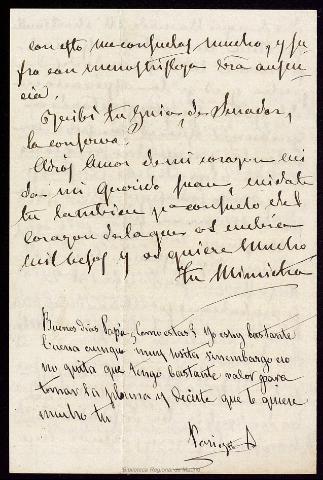 con esto me consuelas mucho, y su
fro con menos tristeza esta ausen
cia.
Recibí tu Guia de Senador,
la conservo.
Adiós Amor de mi corazon cui
da mi querido Juan, cuidate
tu tambien pa consuelo del
corazon de la que os embia
mil besos y os quiere mucho
tu Mimicha
Buenos dias Papá, ¿como estas? Yo estoy bastante
buena aunque muy sosita sinembargo eso
no quita que tengo bastante valor para
tomar la pluma y decirte que te quiere
mucho tu
Biblioteca Regional de Madrid